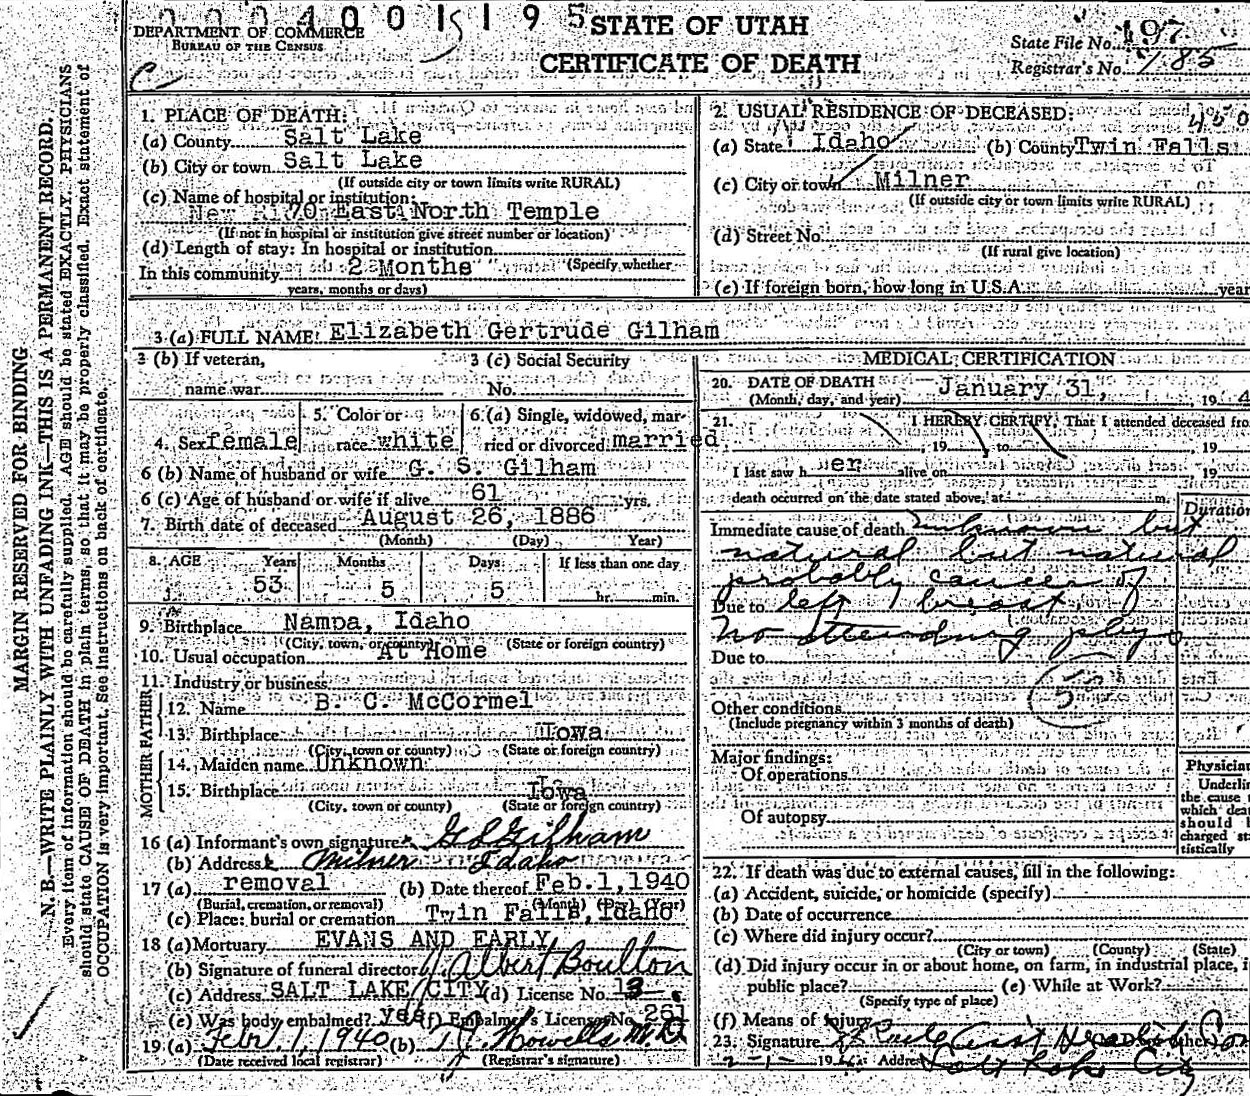 0 0 0 4 0 0 1 5 1 9 5
STATE OF UTAH
CERTIFICATE OF DEATH
DEPARTMENT OF COMMERCE
BUREAU OF THE CENSUS
State File No. 197
Registrar's No. 185
MARGIN RESERVED FOR BINDING
N. B.—WRITE PLAINLY WITH UNFADING INK—THIS IS A PERMANENT RECORD.
Every item of information should be carefully supplied. AGE should be stated EXACTLY. PHYSICIANS
should state CAUSE OF DEATH in plain terms, so that it may be properly classified. Exact statement of
OCCUPATION is very important. See instructions on back of certificate.
1. PLACE OF DEATH:
(a) County Salt Lake
(b) City or town Salt Lake
(If outside city or town limits write RURAL)
(c) Name of hospital or institution:
70 East North Temple
(If not in hospital or institution give street number or location)
(d) Length of stay: In hospital or institution
In this community 2 Months (Specify whether
years, months or days)
2. USUAL RESIDENCE OF DECEASED:
(a) State Idaho (b) County Twin Falls
(c) City or town Milner
(If outside city or town limits write RURAL)
(d) Street No.
(If rural give location)
(e) If foreign born, how long in U.S.A. year
3 (a) FULL NAME: Elizabeth Gertrude Gilham
3 (b) If veteran, 3 (c) Social Security
name war No.
4. Sex female 5. Color or race white 6 (a) Single, widowed, married or divorced married
6 (b) Name of husband or wife G. S. Gilham
6 (c) Age of husband or wife if alive 61 yrs.
7. Birth date of deceased August 26, 1886
(Month) (Day) Year)
8. AGE Years Months Days If less than one day
53 5 5 hr. min.
9. Birthplace Nampa, Idaho
(City, town, or county) (State or foreign country)
10. Usual occupation At Home
11. Industry or business
FATHER
12. Name B. C. McCormel
13. Birthplace Iowa
(City, town or county) (State or foreign country)
MOTHER
14. Maiden name Unknown
15. Birthplace Iowa
(City, town or county) (State or foreign country)
16 (a) Informant's own signature G S Gilham
(b) Address Milner Idaho
17 (a) removal (b) Date thereof Feb. 1, 1940
(Burial, cremation, or removal) (Month) (Day) (Year)
(c) Place: burial or cremation Twin Falls, Idaho
18 (a) Mortuary EVANS AND EARLY
(b) Signature of funeral director J. Albert Boulton
(c) Address SALT LAKE CITY (d) License No. 13
(e) Was body embalmed? yes (f) Embalmer's License No. 261
19 (a) Febr 1, 1940 (b) T. J. Howells M.D.
(Date received local registrar) (Registrar's signature)
MEDICAL CERTIFICATION
20. DATE OF DEATH January 31, 19 4
(Month, day, and year)
21. I HEREBY CERTIFY, That I attended deceased fro
, 19 to , 19
I last saw h er alive on 19
death occurred on the date stated above, at m.
Duration
Immediate cause of death unknown but
natural but natural
probably cancer of
Due to left breast.
No attending phys
Due to
Other conditions
(Include pregnancy within 3 months of death)
Major findings:
Of operations
Of autopsy
Physician
Underlin
the cause
which dea
should b
charged st
tistically
22. If death was due to external causes, fill in the following:
(a) Accident, suicide, or homicide (specify)
(b) Date of occurrence
(c) Where did injury occur?
(City or town) (County) (State)
(d) Did injury occur in or about home, on farm, in industrial place, i
public place? (e) While at Work?
(Specify type of place)
(f) Means of Injury
23. Signature Asst Health Com
2-1- 19 Address Salt Lake City